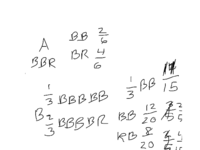 A
BBR
BB 2/6
BR 4/6
1/3 BBBBB
B 2/3 BBBBR
1/3 BB /15
BB 12/20
RB 8/20